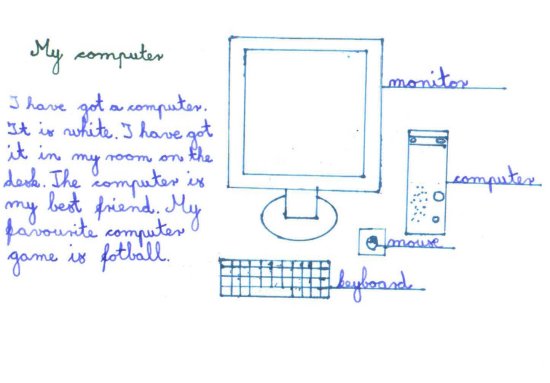 My computer
I have got a computer.
It is white. I have got
it in my room on the
desk. The computer is
my best friend. My
favourite computer
game is fotball.
monitor
computer
mouse
keyboard